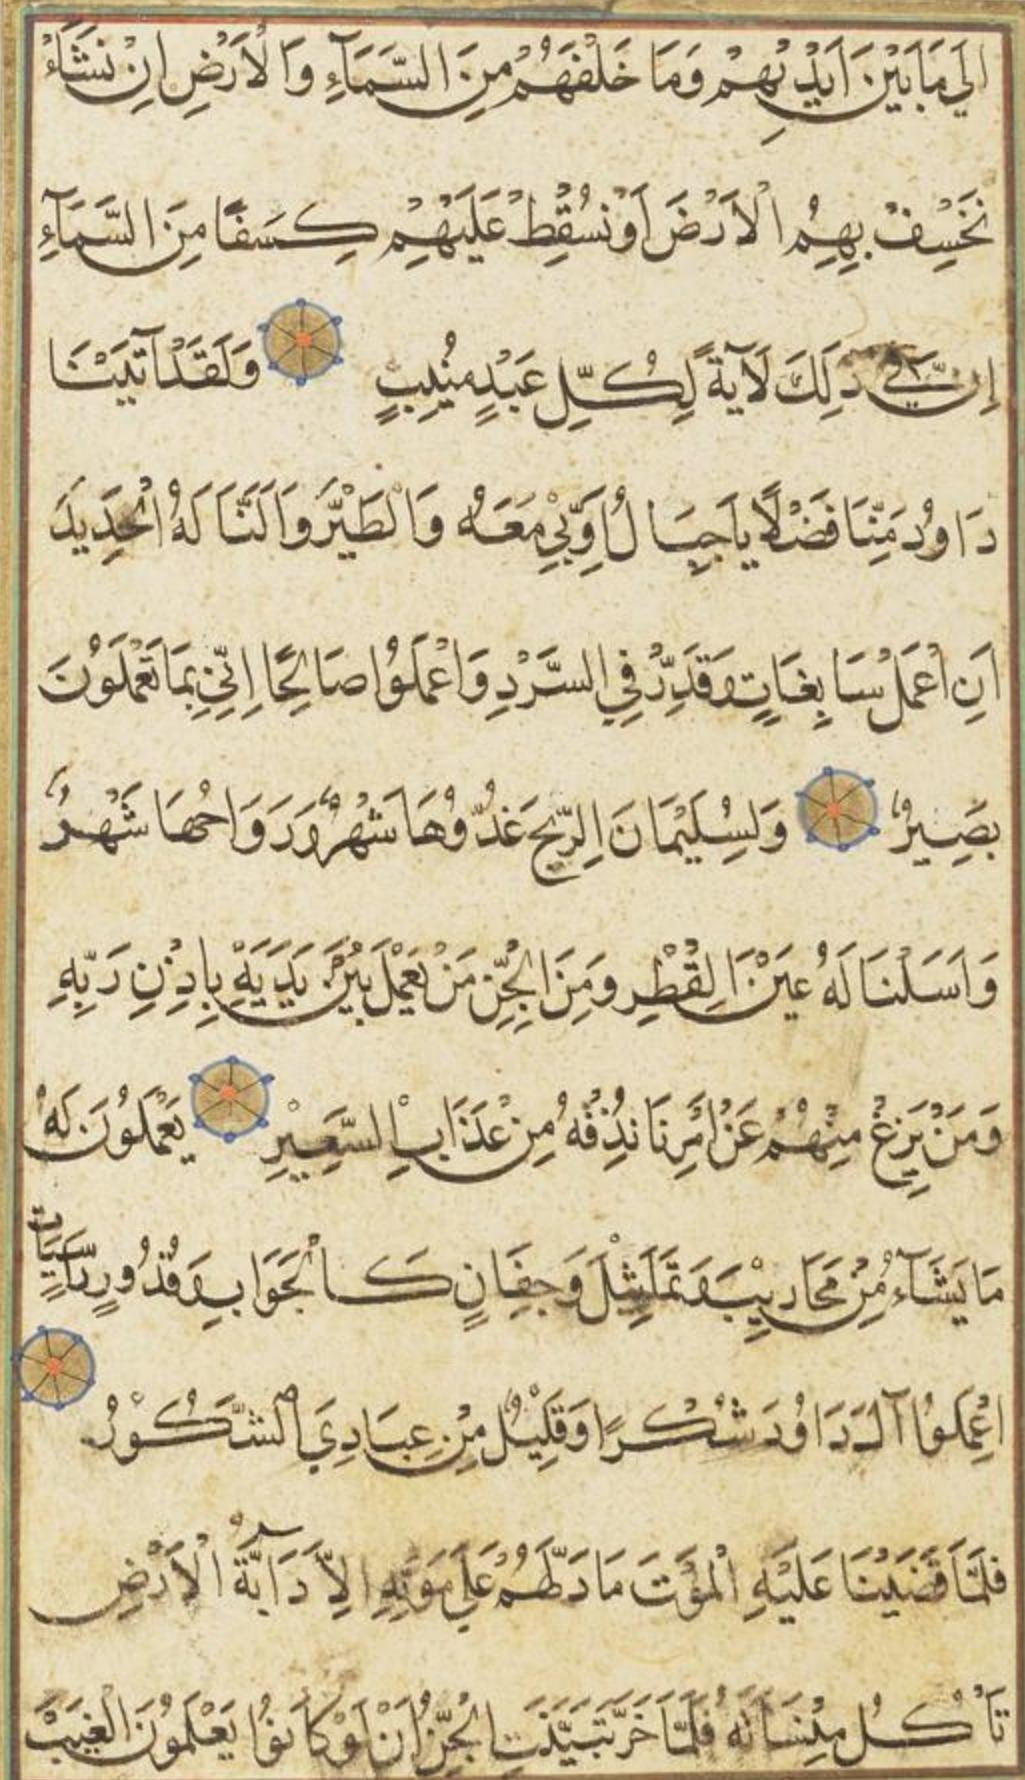 اِلَي مَا بَيْنَ اَيْدِيهِمْ وَمَا خَلْفَهُمْ مِنَ السَّمَآءِ وَالْاَرْضِ اِنْ نَشَاءْ
نَخْسِفْ بِهِمُ الْاَرْضَ اَوْ نُسْقِطْ عَلَيْهِمْ كِسَفًا مِنَ السَّمَآءِ
اِنَّ فِي ذَلِكَ لَآيَةً لِكُلِّ عَبْدٍ مُنِيبٍ وَلَقَدْ آتَيْنَا
دَاوُدَ مِنَّا فَضْلًا يَا جِبَالُ اَوِّبِي مَعَهُ وَالْطَيْرَ وَاَلَنَّا لَهُ الْحَدِيدَ
اَنِ اعْمَلْ سَابِغَاتٍ وَقَدِّرْ فِي السَّرْدِ وَاعْمَلُوا صَالِحًا اِنِّي بِمَا تَعْمَلُونَ
بَصِيرٌ وَلِسُلَيْمَانَ الرِّيحَ غُدُوُّهَا شَهْرٌ وَرَوَاحُهَا شَهْرٌ
وَاَسَلْنَا لَهُ عَيْنَ الْقِطْرِ وَمِنَ الْجِنِّ مَنْ يَعْمَلُ بَيْنَ يَدَيْهِ بِاِذْنِ رَبِّهِ
وَمَنْ يَزِغْ مِنْهُمْ عَنْ اَمْرِنَا نُذِقْهُ مِنْ عَذَابِ السَّعِيرِ يَعْمَلُونَ لَهُ
مَا يَشَآءُ مِنْ مَحَارِيبَ وَتَمَاثِيلَ وَجِفَانٍ كَالْجَوَابِ وَقُدُورٍ رَاسِيَاتٍ
اعْمَلُوا آلَ دَاوُدَ شُكْرًا وَقَلِيلٌ مِنْ عِبَادِيَ الشَّكُورُ
فَلَمَّا قَضَيْنَا عَلَيْهِ الْمَوْتَ مَا دَلَّهُمْ عَلَي مَوْتِهِ اِلاَّ دَآبَّةُ الْاَرْضِ
تَاْكُلُ مِنْسَاَتَهُ فَلَمَّا خَرَّ تَبَيَّنَتِ الْجِنُّ اَنْ لَوْ كَانُوا يَعْلَمُونَ الْغَيْبَ